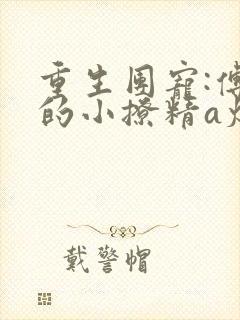 重生团宠:傅
的小撩精a
戴警帽